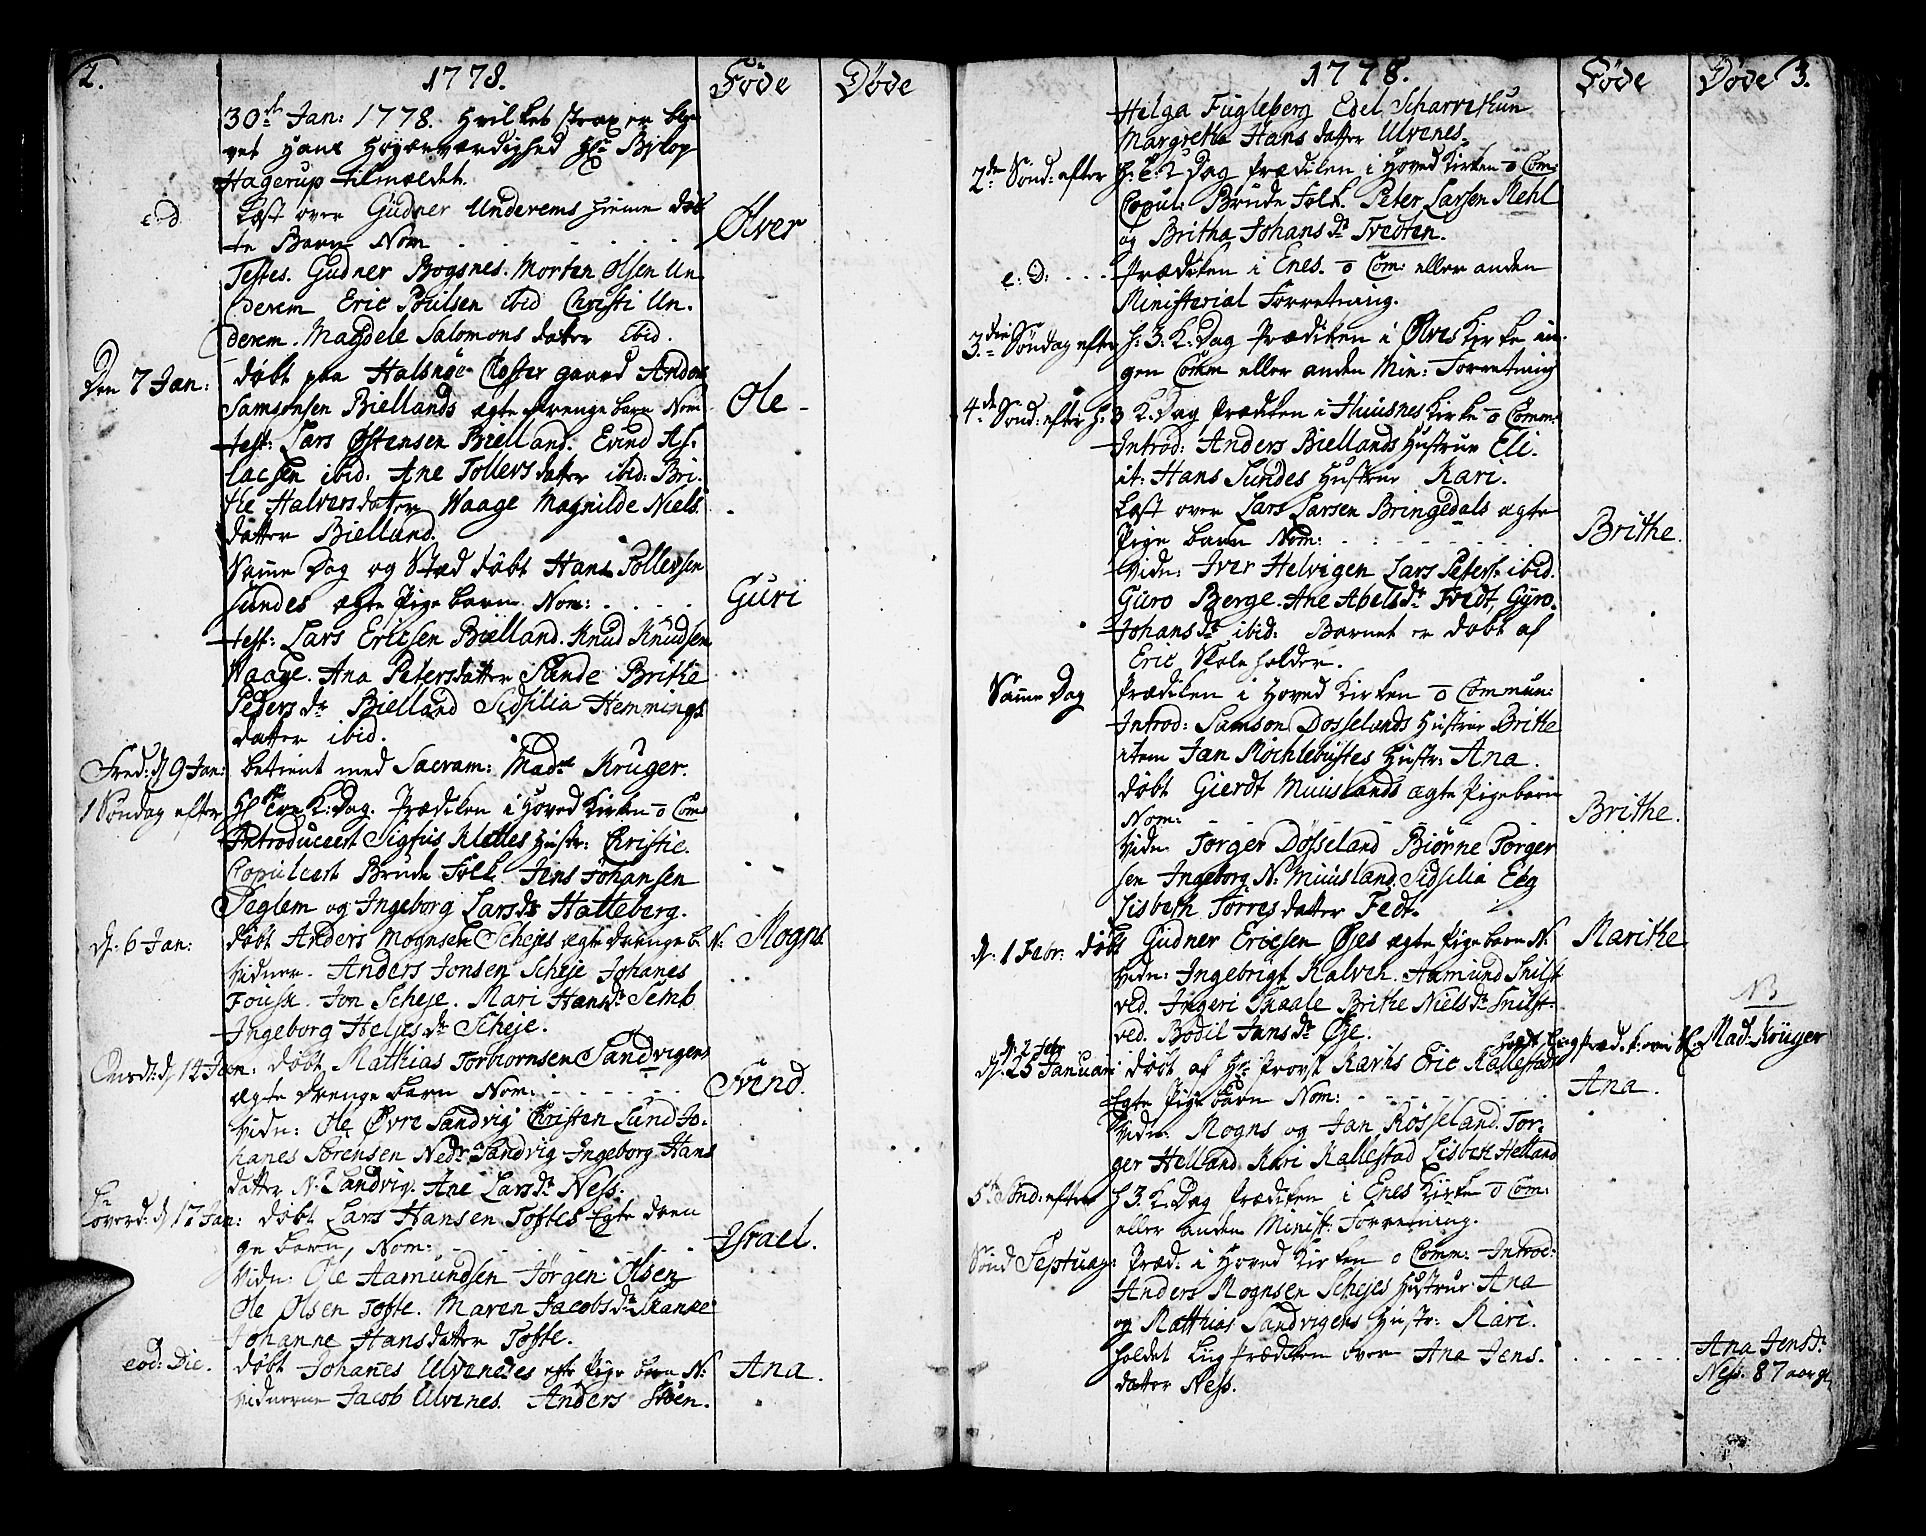 2. 1778. Föde Döde
30te Jan: 1778. Hvilket strax er ble-
vet Hans Höyærværdighed Hr Biskop
Hagerup tilmeldet.
e: d. Læst over Gudner Underems hieme döb
te Barn Nom . . . . . . Ölver
Testes. Gudner Bogsnes. Morten Olsen Un
derem Eric Poulsen ibid Christi Un.
derem. Magdele Salomons dater ibid.
Den 7 Jan: döbt paa Halsnöe Closter gaard Anders
Samsonsen Biellands ægte drenge barn Nom Ole -
test: Lars Östensen Bielland. Evind As.
lacsen ibid: Ane Tollevs dater ibid: Bri.
the Halversdater Waage Magnilde Niels
datter Bielland.
Samme Dag og Stæd döbt Hans Tollevsen
Sundes ægte Pige barn. Nom: . . . . Guri
test: Lars Ericsen Bielland. Knud Knudsen
Waage. Ana Petersdatter Sunde Brithe
Peders dr Bielland Sidsilia Hemmings
datter ibid.
Fred: d 9 Jan: betient med Sacram: Madme Kruger.
1 Söndag efter Hl. Tre K: Dag. Prædiken i Hoved Kirken o Com
Introduceert Sigfus Klettes Hustr: Christie.
Copuleert Brude Folk Jens Johansen
Teglem og Ingeborg Lars dr Hatteberg.
d: 6 Jan: döbt Anders Mognsen Schejes ægte drenge b. N: Mogns
vidner. Anders Jonsen Scheje Johanes
Fousse. Jon Scheje. Mari Hansdr Semb
Ingeborg Heljes dr Scheje.
Onsd: d 14 Jan: döbt Mathias Torbiornsen Sandvigens
ægte drenge barn Nom: - - - - - Svend.
vidn: Ole Övre Sandvig Christen Lund Jo.
hanes Sörensen Nedr Sandvig Ingeborg Hans
datter N: Sandvig. Ane Larsdr Ness.
Löverd: d 17 Jan: döbt Lars Hansen Toftes Egte dren
ge barn, Nom: - - - - - Israel.
Vidn: Ole Aamundsen Jörgen Olsen
Ole Olsen Tofte. Maren Jacobsdr Skanke
Johanne Hansdatter Tofte.
eod: Die. döbt Johanes Ulvenæs egte Pige barn N: Ana.
vidnerne Jacob Ulvenes. Anders Söen.
1778. Föde Döde 3.
Helga Fugleberg Edel Scharvekun
Margrethe Hans datter Ulvenes.
2den Sönd: efter H: 3. K Dag Prædiken i Hoved Kirken o Com:
Copul: Brude Folk. Peter Larsen Mehl
og Britha Johans dr Tvedten.
e: D: . . . Prædiken i Enes. o Com: eller anden
Ministerial Forretning.
3.die Söndag efter h. 3. K. Dag Prædiken i Ölves Kirke in-
gen Comm eller anden Min: Forretning
4de Sönd: efter H: 3 K. Dag Prædiken i Huusnes Kirke o Comm.
Introd: Anders Biellands Hustrue Eli.
it: Hans Sundes Hustrue Kari.
Læst over Lars Larsen Bringedals ægte
Pige barn Nom: . . . . . . Brithe.
vidn: Iver Helvigen Lars Peters: ibid.
Guro Berge. Ane Abels dr Tvedt, Gyro.
Johans dr ibid: Barnet er döbt af
Eric Skoleholder.
Samme Dag Prædiken i Hoved Kirken o Commun:
Introd: Samson Dosselands Hustrue Brithe
item Jan Röchlebustes Hustr: Ana.
döbt Gierdt Muuslands ægte Pige barn
Nom: - - - - - - Brithe.
vidn. Torger Dosseland Biörne Torger
sen Ingeborg N: Muusland. Sidsilia Eeg
Lisbeth Torres datter Fedt.
d: 1 Febr: döbt Gudner Ericsen Öjes ægte Pige barn N: Marithe
vidn: Ingebrigt Kalven. Aamund Snilst
ved. Ingeri Skaale Brithe Niels dr Snilst.
ved. Bodil Jansdr Öje. NB
d. 2 Febr holdt Liigpræd:k: over Mad: Krüger
d: 25 Januari döbt af Hr Provst Rarhs Eric Kallestads
Egte Pige barn Nom: - - - - - - Ana.
vidn: Mogns og Jan Rösseland. Tor-
ger Helland Kari Kallestad Lisbeth Helland
5te Sönd: efter H 3. K. Dag Prædiken i Enes Kirke o Com:
eller anden Minist: Forretning.
Sönd Septuag: Præd: i Hoved Kirken o Comm: Introd:
Anders Mognsen Schejes Hustrue Ana
og Matthias Sandvigens Hustr: Kari.
holdet Liig Prædiken over Ana Jens. . . . . . Ana Jensdr
datter Ness. Ness. 87 aar gl